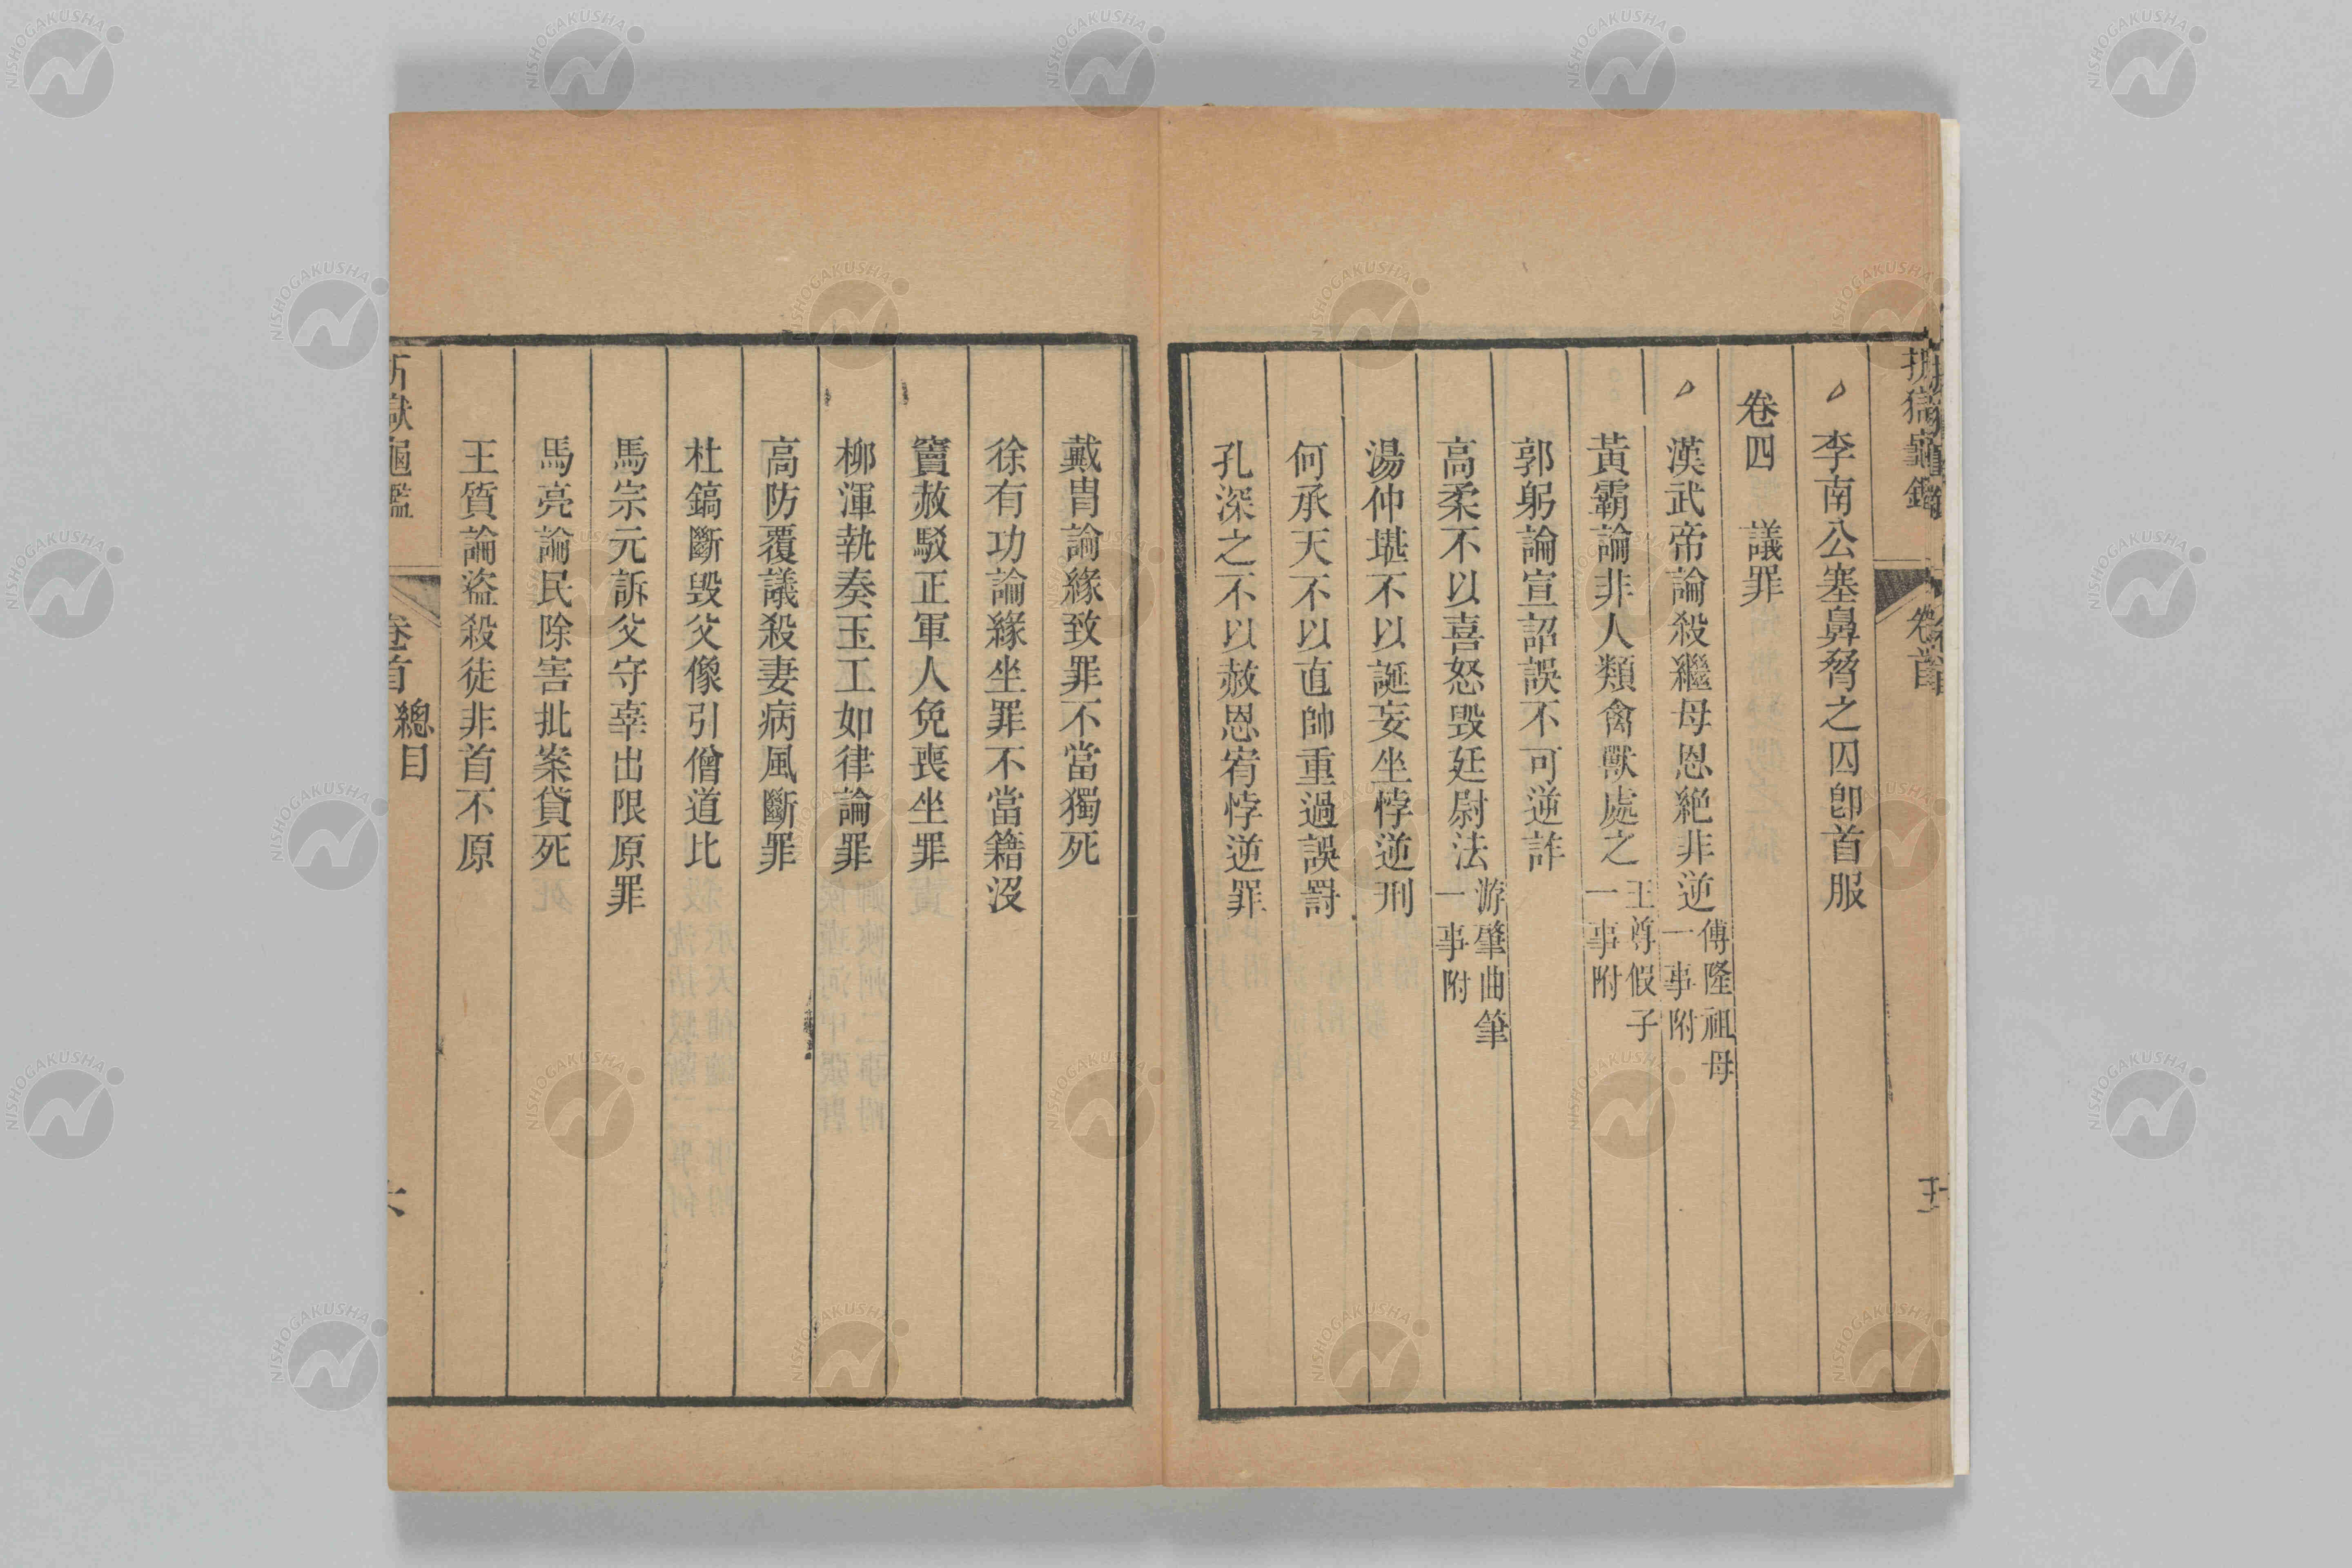 折獄龜鑑 卷首 五
李南公塞鼻脅之囚卽首服
卷四 議罪
漢武帝論殺繼母恩絶非逆 傅隆祖母一事附
黃霸論非人類禽獸處之 王尊假子一事附
郭躬論宣詔誤不可逆詐
高柔不以喜怒毀廷尉法 游肇曲筆一事附
湯仲堪不以誕妄坐悖逆刑
何承天不以直帥重過誤罸
孔深之不以赦恩宥悖逆罪
戴胄論緣致罪不當獨死
徐有功論緣坐罪不當籍沒
竇赦駁正軍人免喪坐罪
柳渾執奏玉工如律論罪
高防覆議殺妻病風斷罪
杜鎬斷毀父像引僧道比
馬宗元訴父守辜出限原罪
馬亮論民除害批案貸死
王質論盜殺徒非首不原
折獄龜鑑 卷首 總目 六
NISHOGAKUSHA